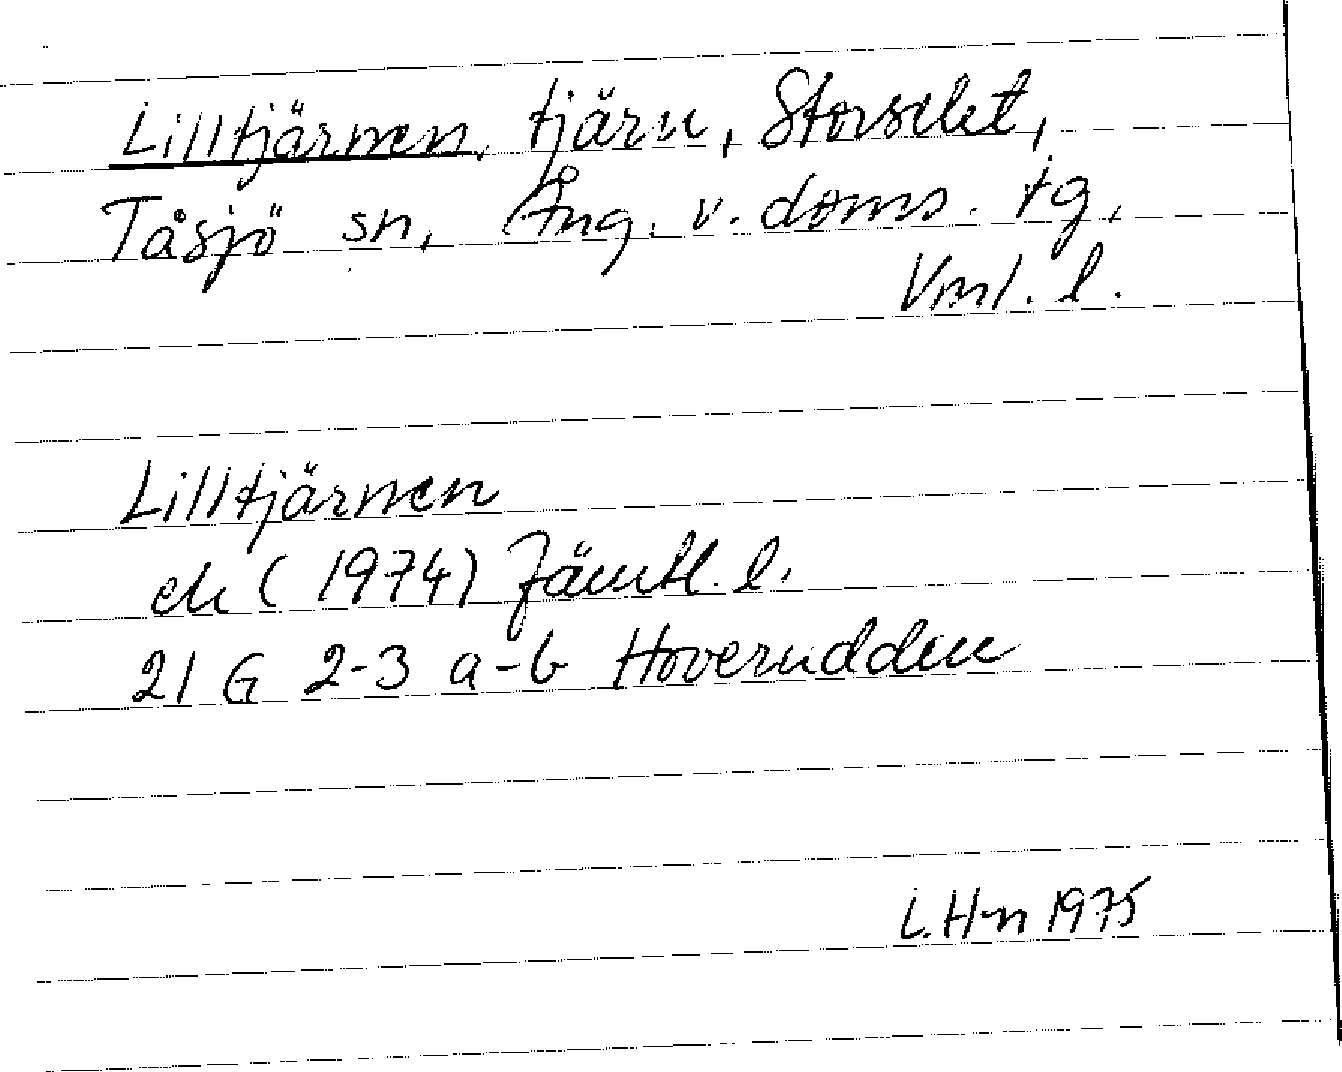 Lilltjärnen, tjärn, Storselet,
Tåsjö sn, Ång. v. doms. tg,
Vnl. l.
Lilltjärnen
ek (1974) Jämtl. l.
21 G 2-3 a-b Hoverudden
L. H-n 1975